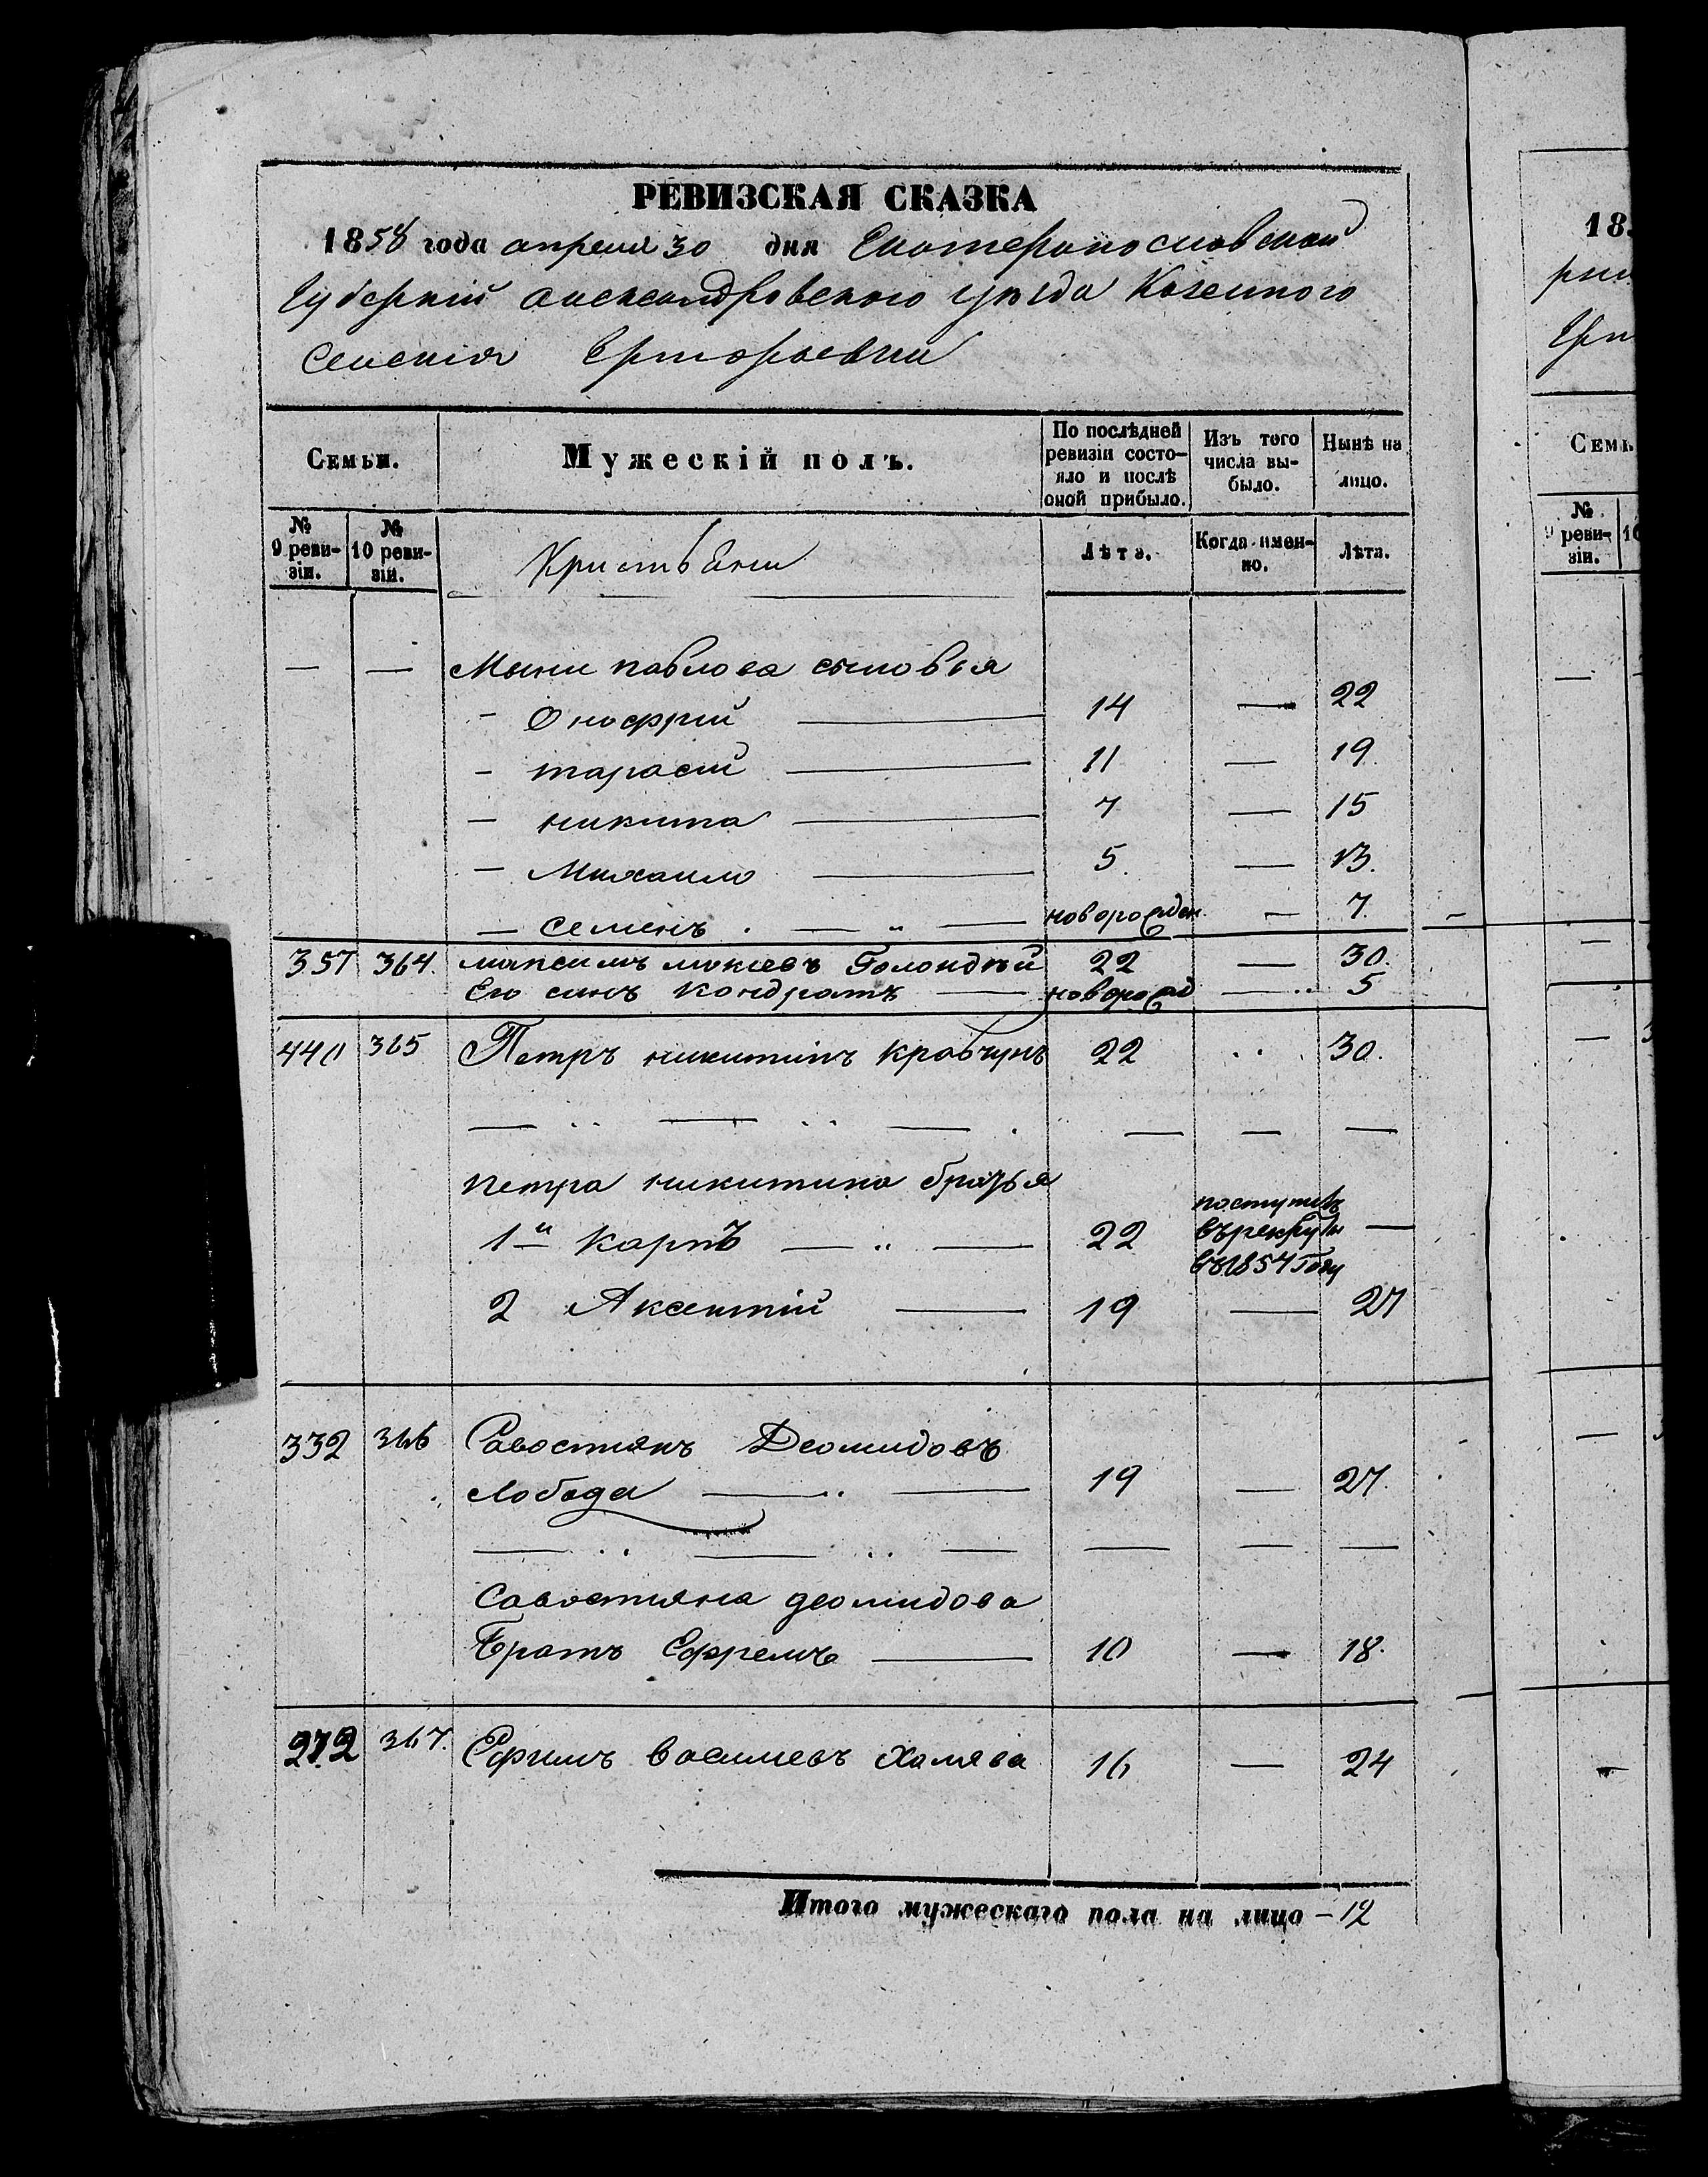 РЕВИЗСКАЯ СКАЗКА
1858 года апреля 30 дня Екатеринославской
Губерній Александровского уѣзда Казенного
Селенія
Семьи.
Мужескій полъ.
По послѣдней ревизіи состояло и послѣ оной прибыло.
Изъ того числа выбыло.
Нынѣ на лицо.
№ 9 ревизіи.
№ 10 ревизіи.
Лѣта.
Когда именно.
Лѣта.
— — павлова сыновья
- Онофрій — 14 — 22
- тарасій — 11 — 19
- никита — 7 — 15
- Михаило — 5. — 13.
- Семенъ . — „ — новорожден. — 7.
357 364. максимъ мокіевъ Голондзій 22 — 30.
Его сынъ Кондратъ — новорожд — 5
440 365 Петръ никитинъ Кравчунъ 22 .. 30.
Петра никитина братья
1й Карпъ — „ — 22 поступилъ въ рекруты въ 1854 Году —
2 Аксентій — 19 — 27
332 366 Савостянъ Деомидовъ
Лобода — 19 — 27.
Савостяна деомидова
Братъ Ефремъ — 10 — 18.
272 367. Ефимъ васильевъ Халява 16 — 24
Итого мужескаго пола на лицо — 12
18
Семь
№ 9 ревизіи.
10